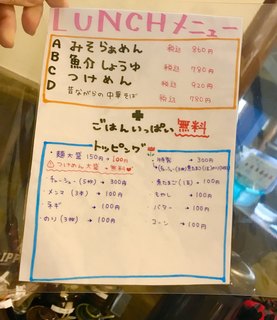 LUNCHメニュー
A みそらぁめん 税込 860円
B 魚介しょうゆ 税込 780円
C つけめん 税込 920円
D 昔ながらの中華そば 税込 780円
+
ごはんいっぱい無料
トッピング
麺大盛 150円→100円
つけめん大盛→無料
チャーシュー(5枚) → 300円
メンマ(3本) → 100円
ネギ → 100円
のり(3枚) → 100円
特製 → 300円
煮たまご(1ヶ) → 100円
もやし → 100円
バター → 100円
コーン → 100円